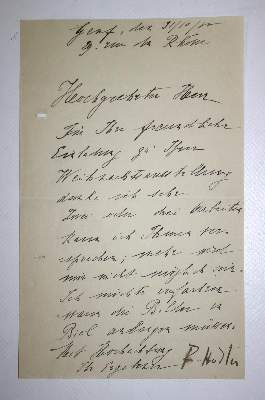 Genf, den 31/10/
29. rue du Rhône
Hochgeehrter Herr
Für Ihre freundliche
Einladung zu Ihrer
Weihnachtsausstellung
danke ich sehr.
Zwei oder drei Arbeiten
kann ich Ihnen ver-
sprechen, mehr wird
mir nicht möglich sein.
Ich möchte erfahren
wann die Bilder in
Biel anlangen müssen.
Mit Hochachtung
Ihr Ergebener F. Hodler